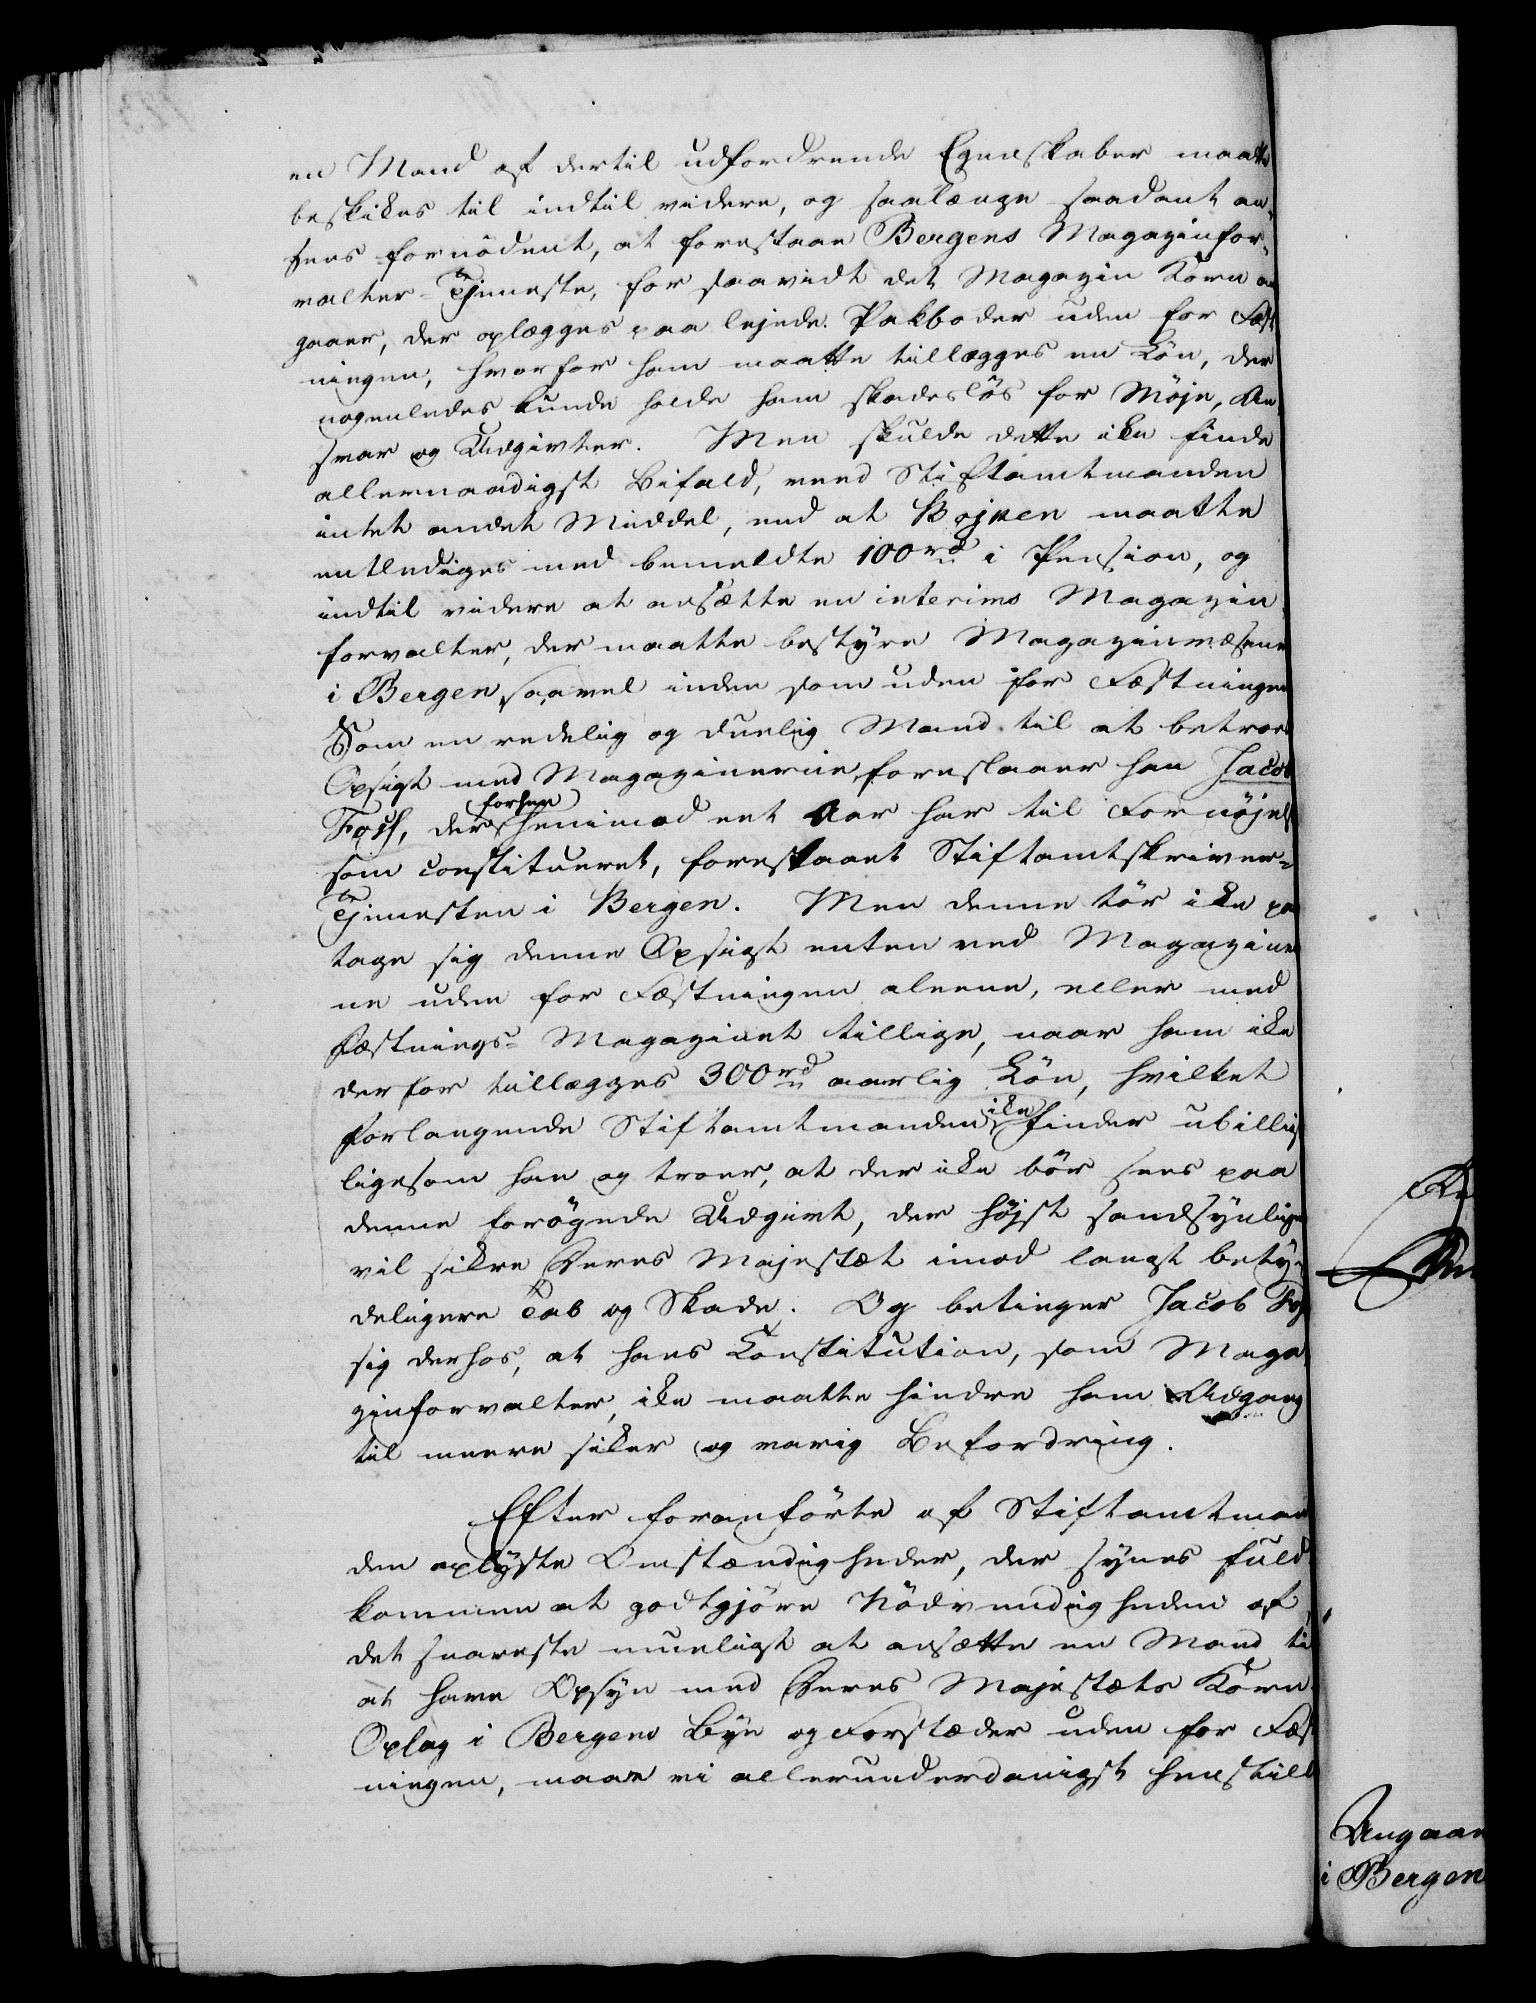 en Mand af dertil udfordrende Egenskaber maatte
beskikes til indtil videre, og saalænge saadant an-
sees fornödent, at forestaae Bergens Magazinfor-
valter-Tjeneste, for saavidt det Magazin Korn an
gaaer, der oplægges paa lejede Pakboder uden for Fæst
ningen, hvorfor ham maatte tillægges en Lön, der
nogenledes kunde holde ham skadeslös for Möje, An-
svar og Udgivter. Men skulde dette ike finde
allernaadigst Bifald, veed Stiftamtmanden
intet andet Middel, end at Bojsen maatte
entlediges med bemeldte 100 rd i Pension, og
indtil videre at ansætte en interims Magazin
forvalter, der maatte bestÿre Magazinvæsene
i Bergen, saavel inden som uden for Fæstningen
Som en redelig og duelig Mand til at betroe
Opsigt med Magazinerne, foreslaaer han Jacob
Fosz, der forhen henimod eet Aar har til Fornöjel
som constitueret, forestaaet Stiftamtskriver-
Tjenesten i Bergen. Men denne tör ike paa
tage sig denne Opsigt enten ved Magazine
ne uden for Fæstningen aleene, eller med
Fæstnings-Magazinet tillige, naar ham ike
derfor tillægges 300 rd aarlig Lön, hvilket
forlangende Stiftamtmanden ike finder ubillig
ligesom han og troer, at der ike bör sees paa
denne forögede Udgivt, der höjst sandsÿnlig
vil sikre Deres Majestæt imod langt betÿ-
deligere Tab og Skade. Og betinger Jacob Fos
sig derhos, at hans Constitution, som Maga
zinforvalter, ike maatte hindre ham Adgang
til meere siker og varig Befordring.
Efter foranförte af Stiftamtman
den oplÿste Omstændigheder, der sÿnes fuld
kommen at godtgjöre Nödvendigheden af
det snareste mueligt at ansætte en Mand ti
at have Opsÿn med Deres Majestæts Korn
Oplag i Bergens Bÿe og Forstæder uden for Fæst
ningen, maae vi allerunderdanigst henstille
Angaae
i Bergen